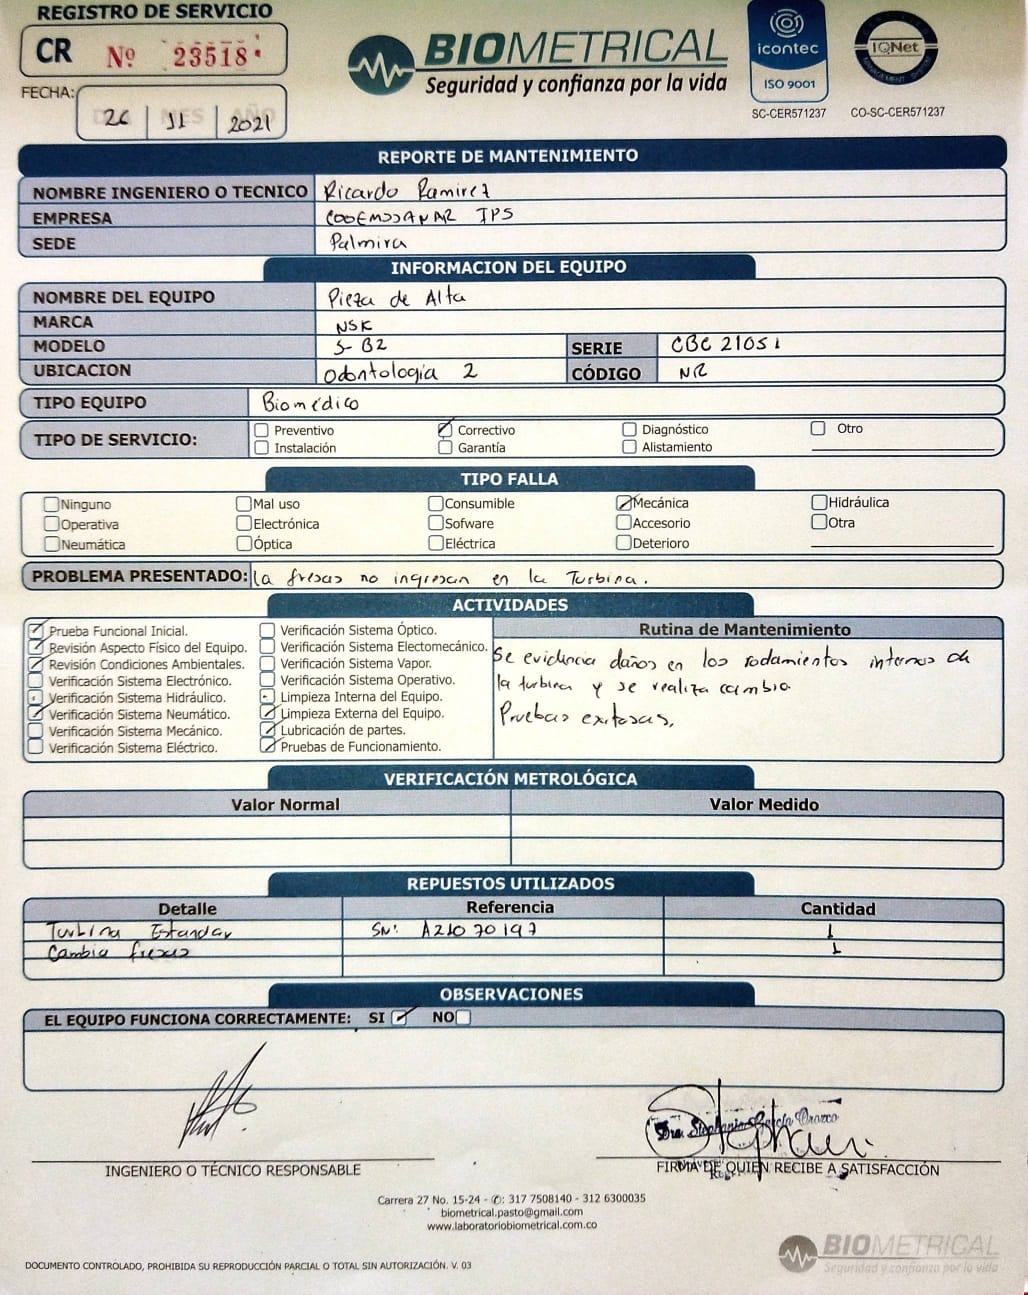 REGISTRO DE SERVICIO
CR Nº 23518
BIOMETRICAL
Seguridad y confianza por la vida
icontec
ISO 9001
SC-CER571237
IQNet
MANAGEMENT SYSTEM
CO-SC-CER571237
FECHA: 26 11 2021
REPORTE DE MANTENIMIENTO
NOMBRE INGENIERO O TECNICO Ricardo Ramirez
EMPRESA CODEMSSANAR IPS
SEDE Palmira
INFORMACION DEL EQUIPO
NOMBRE DEL EQUIPO Pieza de Alta
MARCA NSK
MODELO S-B2 SERIE CBC 21051
UBICACION Odontologia 2 CÓDIGO NR
TIPO EQUIPO Biomédico
TIPO DE SERVICIO: Preventivo Correctivo Diagnóstico Otro
Instalación Garantía Alistamiento
TIPO FALLA
Ninguno Mal uso Consumible Mecánica Hidráulica
Operativa Electrónica Sofware Accesorio Otra
Neumática Óptica Eléctrica Deterioro
PROBLEMA PRESENTADO: la fresas no ingresan en la Turbina.
ACTIVIDADES
Prueba Funcional Inicial.
Revisión Aspecto Físico del Equipo.
Revisión Condiciones Ambientales.
Verificación Sistema Electrónico.
Verificación Sistema Hidráulico.
Verificación Sistema Neumático.
Verificación Sistema Mecánico.
Verificación Sistema Eléctrico.
Verificación Sistema Óptico.
Verificación Sistema Electomecánico.
Verificación Sistema Vapor.
Verificación Sistema Operativo.
Limpieza Interna del Equipo.
Limpieza Externa del Equipo.
Lubricación de partes.
Pruebas de Funcionamiento.
Rutina de Mantenimiento
Se evidencia daños en los rodamientos internos de
la turbina y se realiza cambio.
Pruebas exitosas,
VERIFICACIÓN METROLÓGICA
Valor Normal Valor Medido
REPUESTOS UTILIZADOS
Detalle Referencia Cantidad
Turbina Estandar SN: A21070197 1
Cambia fresas 1
OBSERVACIONES
EL EQUIPO FUNCIONA CORRECTAMENTE: SI NO
Dra. Stephania García Orozco
INGENIERO O TÉCNICO RESPONSABLE
FIRMA DE QUIEN RECIBE A SATISFACCIÓN
Carrera 27 No. 15-24 - ✆: 317 7508140 - 312 6300035
biometrical.pasto@gmail.com
www.laboratoriobiometrical.com.co
BIOMETRICAL
Seguridad y confianza por la vida
DOCUMENTO CONTROLADO, PROHIBIDA SU REPRODUCCIÓN PARCIAL O TOTAL SIN AUTORIZACIÓN. V. 03